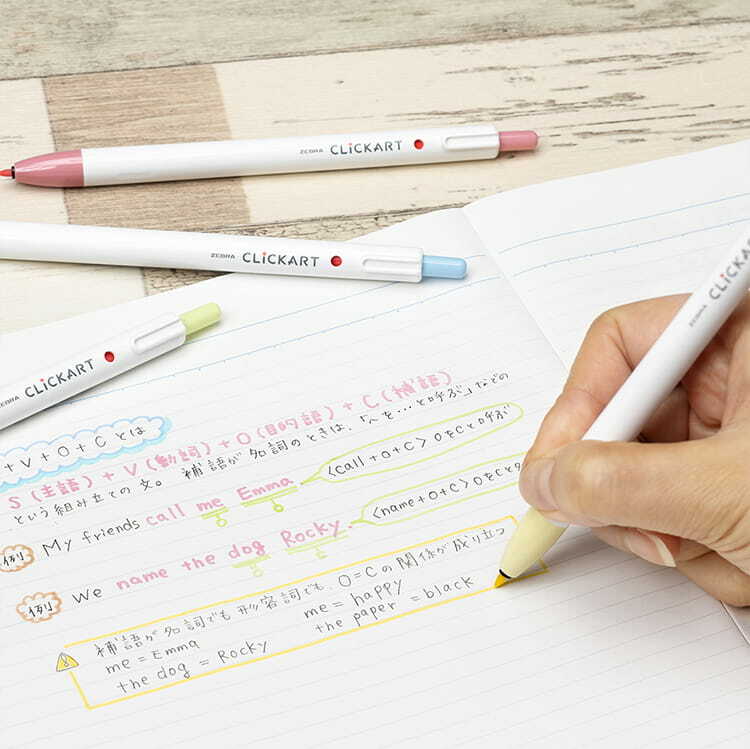 ZEBRA CLiCKART
ZEBRA CLiCKART
ZEBRA CLiCKART
ZEBRA CLICKART
+V+O+Cとは
S(主語)+V(動詞)+O(目的語)+C(補語)
という組み立ての文。補語が名詞のときは、「〜を…と呼ぶ」などの
例 My friends call me Emma <call+O+C> OをCと呼ぶ
例 We name the dog Rocky. <name+O+C> OをCと
補語が名詞でも形容詞でも、O=Cの関係が成り立つ
me = Emma me = happy
the dog = Rocky the paper = black